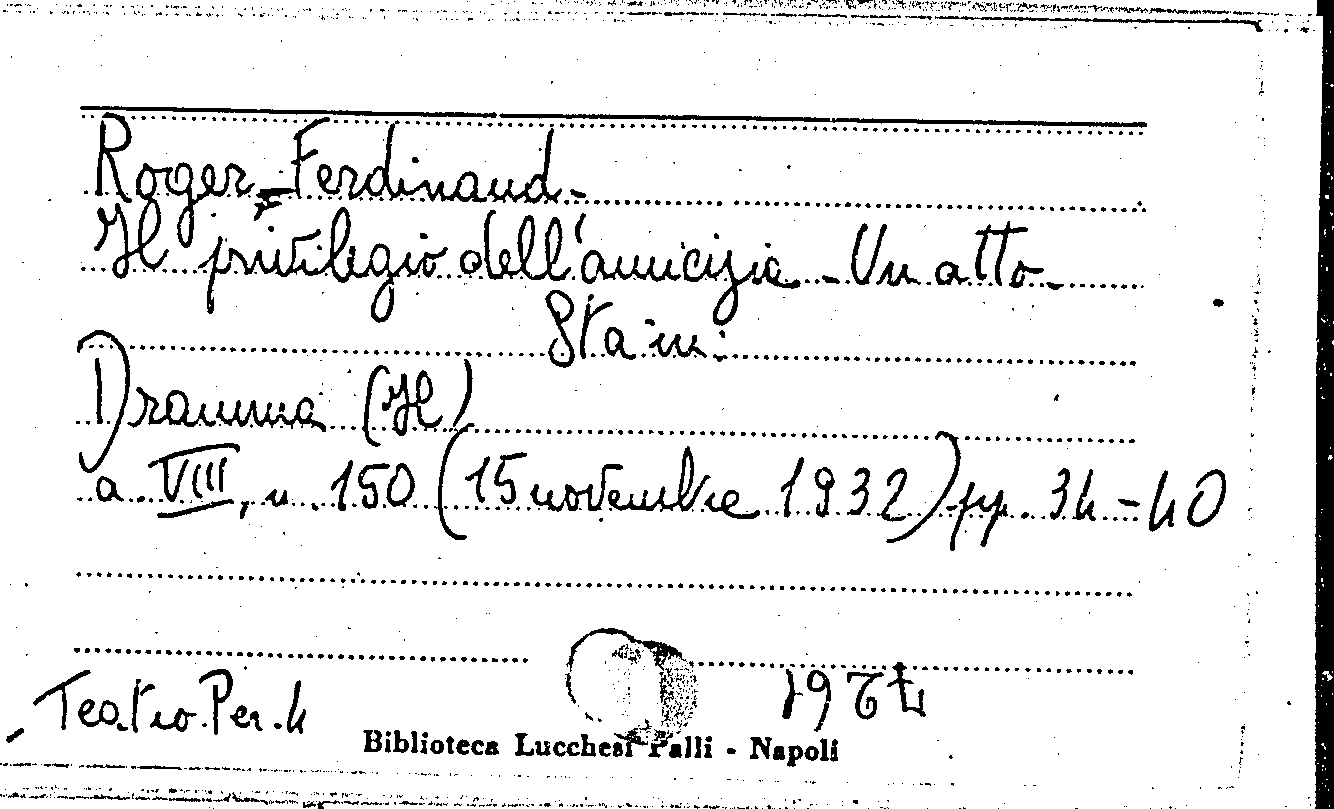 Roger = Ferdinand -
Il privilegio dell'amicizia - Un atto -
Sta in:
Dramma (Il)
a. VIII, n. 150 (15 novembre 1932) pp. 34 - 40
Teatro. Per. 4
Biblioteca Lucchesi Palli - Napoli